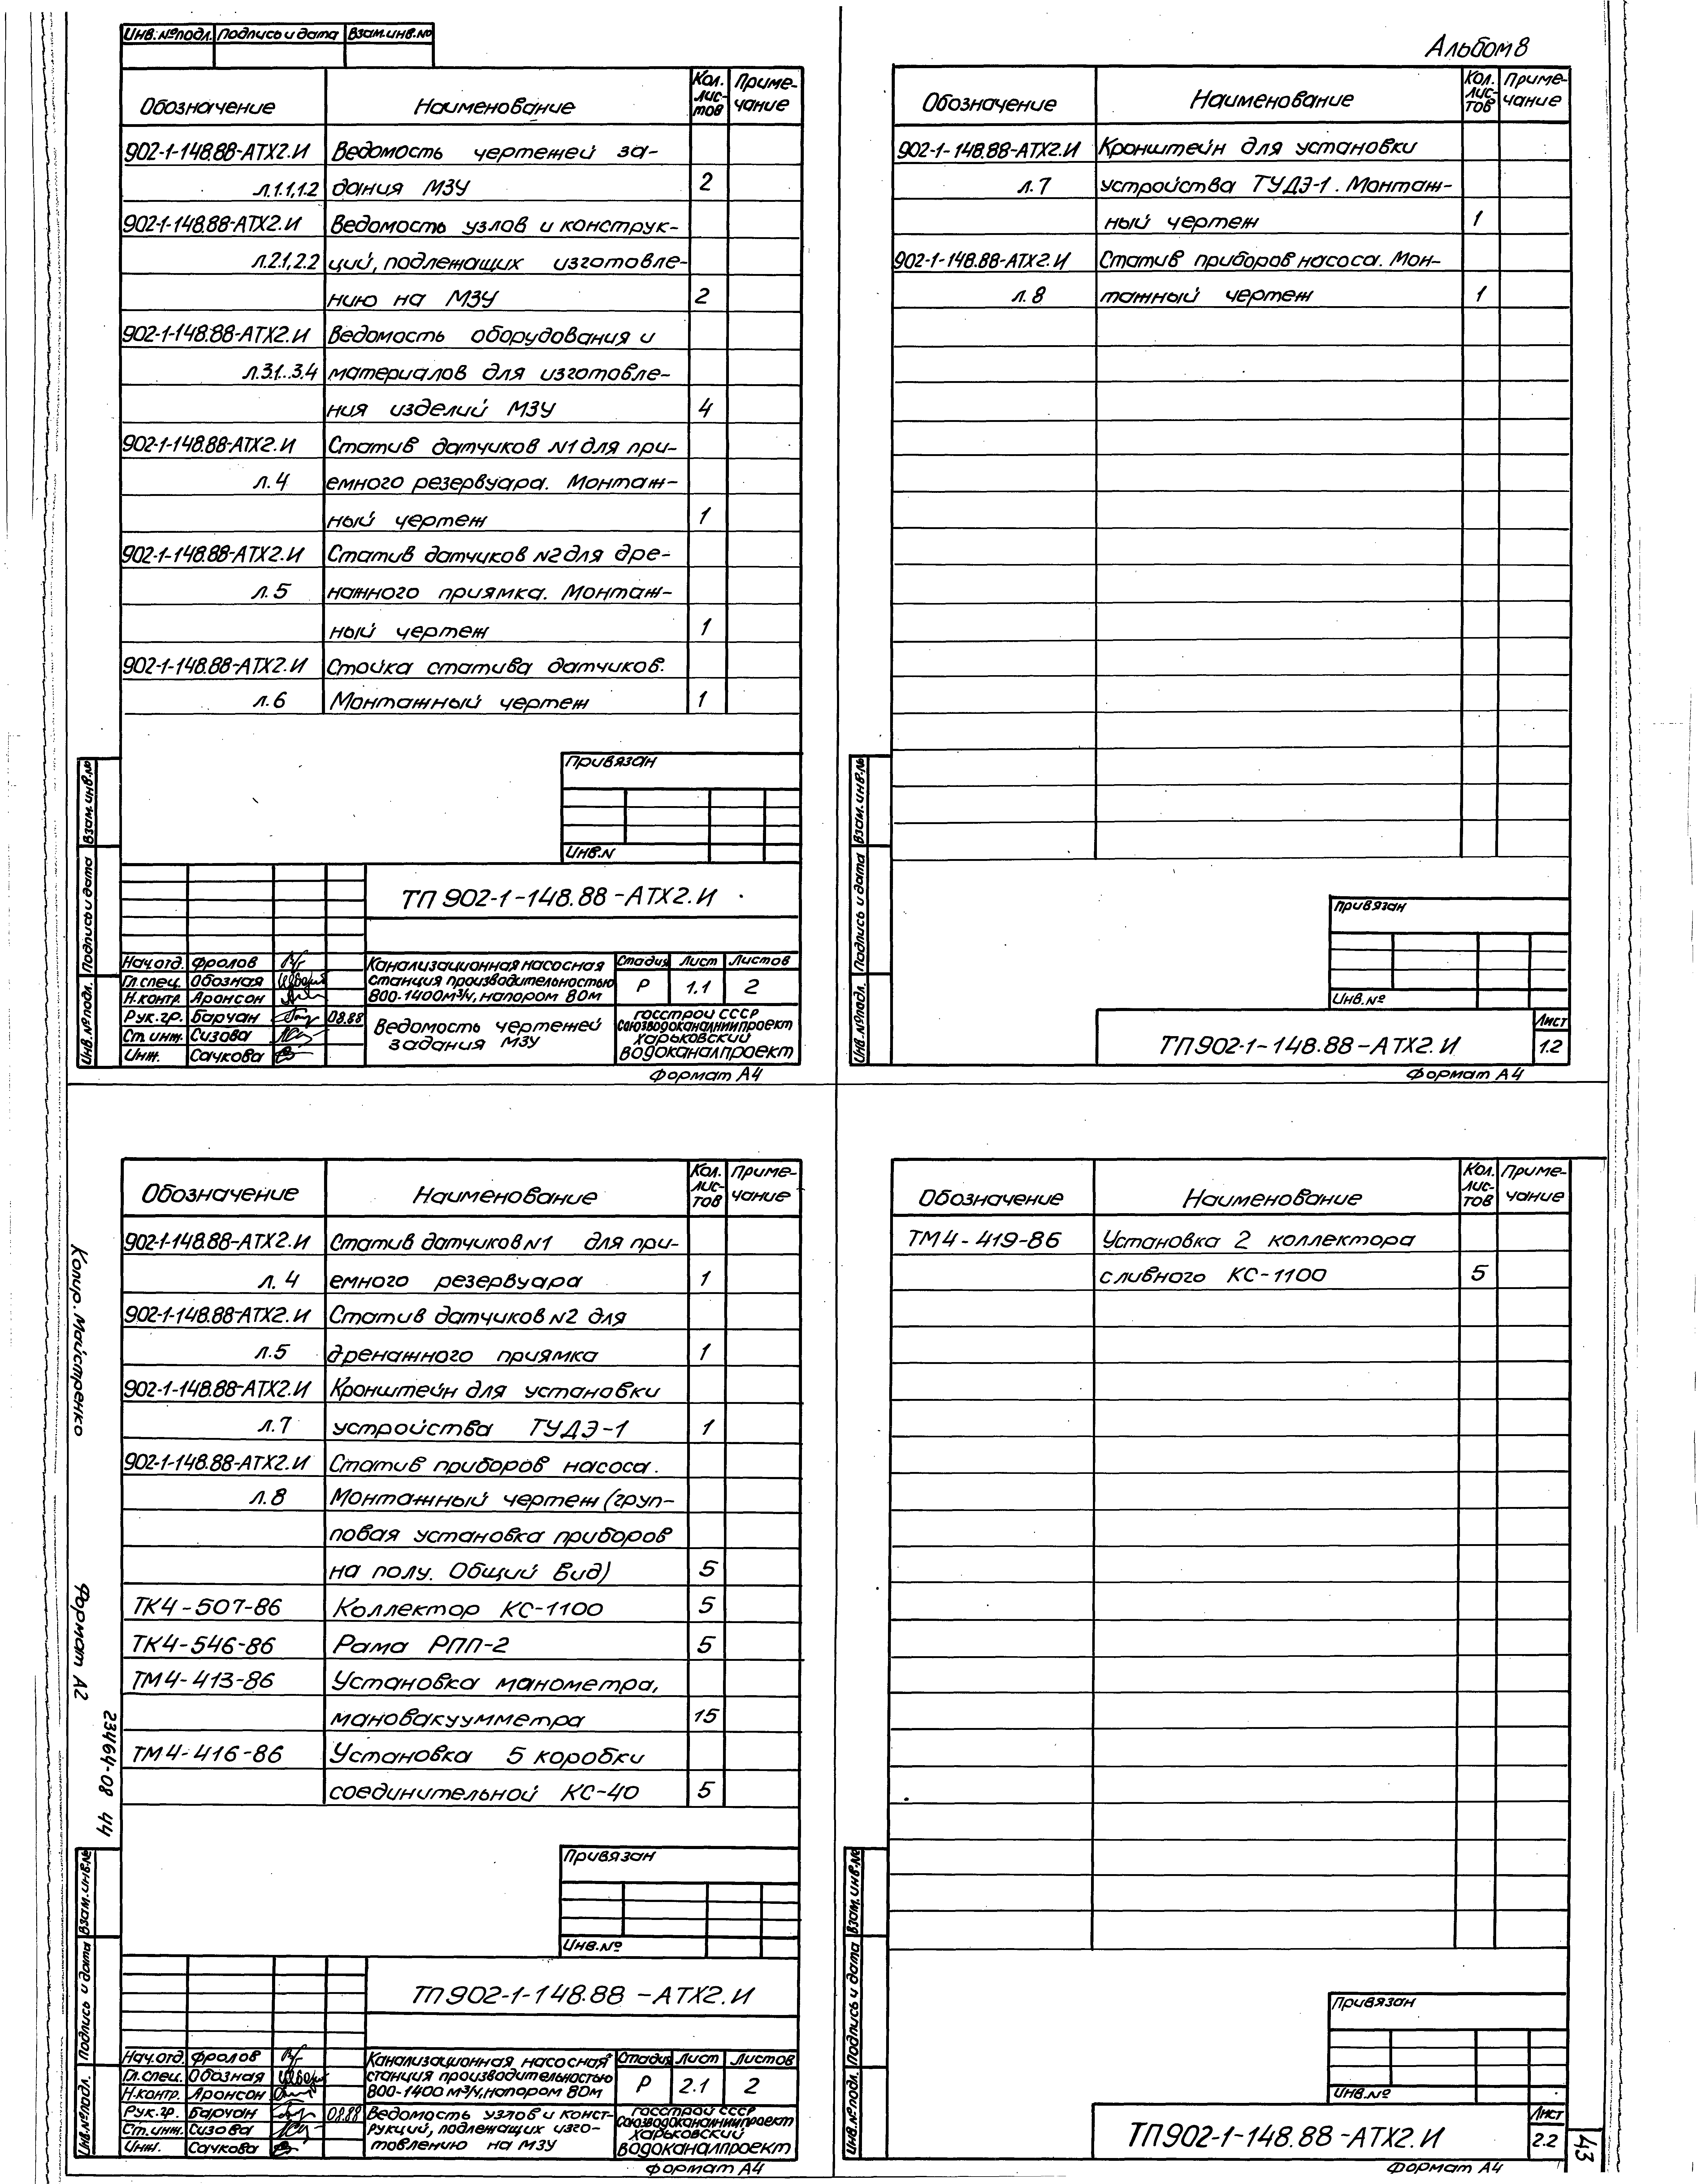 Инв.№подл. Подпись и дата Взам.инв.№
Обозначение Наименование Кол. лис- тов Приме- чание
902-1-148.88-АТХ2.И Ведомость чертежей за-
л.1.1,1.2 дания МЗУ 2
902-1-148.88-АТХ2.И Ведомость узлов и конструк-
л.2.1,2.2 ций, подлежащих изготовле-
нию на МЗУ 2
902-1-148.88-АТХ2.И Ведомость оборудования и
л.3.1...3.4 материалов для изготовле-
ния изделий МЗУ 4
902-1-148.88-АТХ2.И Статив датчиков №1 для при-
л.4 емного резервуара. Монтаж-
ный чертеж 1
902-1-148.88-АТХ2.И Статив датчиков №2 для дре-
л.5 нажного приямка. Монтаж-
ный чертеж 1
902-1-148.88-АТХ2.И Стойка статива датчиков.
л.6 Монтажный чертеж 1
Привязан
Инв.N
ТП 902-1-148.88-АТХ2.И
Нач.отд. Фролов
Гл.спец. Обозная
Н.контр. Аронсон
Рук.гр. Барчан 08.88
Ст.инж. Сизова
Инж. Сачкова
Канализационная насосная
станция производительностью
800-1400м³/ч, напором 80м
Стадия Лист Листов
Р 1.1 2
Ведомость чертежей
задания МЗУ
Госстрой СССР
Союзводоканалниипроект
Харьковский
Водоканалпроект
Формат А4
Инв.№подл. Подпись и дата Взам.инв.№
Альбом 8
Обозначение Наименование Кол. лис- тов Приме- чание
902-1-148.88-АТХ2.И Кронштейн для установки
л.7 устройства ТУДЭ-1. Монтаж-
ный чертеж 1
902-1-148.88-АТХ2.И Статив приборов насоса. Мон-
л.8 тажный чертеж 1
Привязан
Инв.№
ТП902-1-148.88-АТХ2.И
Лист
1.2
Формат А4
Инв.№подл. Подпись и дата Взам.инв.№
Обозначение Наименование Кол. лис- тов Приме- чание
902-1-148.88-АТХ2.И Статив датчиков №1 для при-
л.4 емного резервуара 1
902-1-148.88-АТХ2.И Статив датчиков №2 для
л.5 дренажного приямка 1
902-1-148.88-АТХ2.И Кронштейн для установки
л.7 устройства ТУДЭ-1 1
902-1-148.88-АТХ2.И Статив приборов насоса.
л.8 Монтажный чертеж (груп-
повая установка приборов
на полу. Общий вид) 5
ТК4-507-86 Коллектор КС-1100 5
ТК4-546-86 Рама РПП-2 5
ТМ4-413-86 Установка манометра,
мановакуумметра 15
ТМ4-416-86 Установка 5 коробки
соединительной КС-40 5
Привязан
Инв.№
ТП902-1-148.88-АТХ2.И
Нач.отд. Фролов
Гл.спец. Обозная
Н.контр. Аронсон
Рук.гр. Барчан 08.88
Ст.инж. Сизова
Инж. Сачкова
Канализационная насосная
станция производительностью
800-1400 м³/ч, напором 80м
Стадия Лист Листов
Р 2.1 2
Ведомость узлов и конст-
рукций, подлежащих изго-
товлению на МЗУ
Госстрой СССР
Союзводоканалниипроект
Харьковский
Водоканалпроект
Формат А4
Инв.№подл. Подпись и дата Взам.инв.№
Копир. Майстренко
Формат А2
23464-08 44
Обозначение Наименование Кол. лис- тов Приме- чание
ТМ4-419-86 Установка 2 коллектора
сливного КС-1100 5
Привязан
Инв.№
ТП902-1-148.88-АТХ2.И
Лист
2.2
Формат А4
Инв.№подл. Подпись и дата Взам.инв.№
43